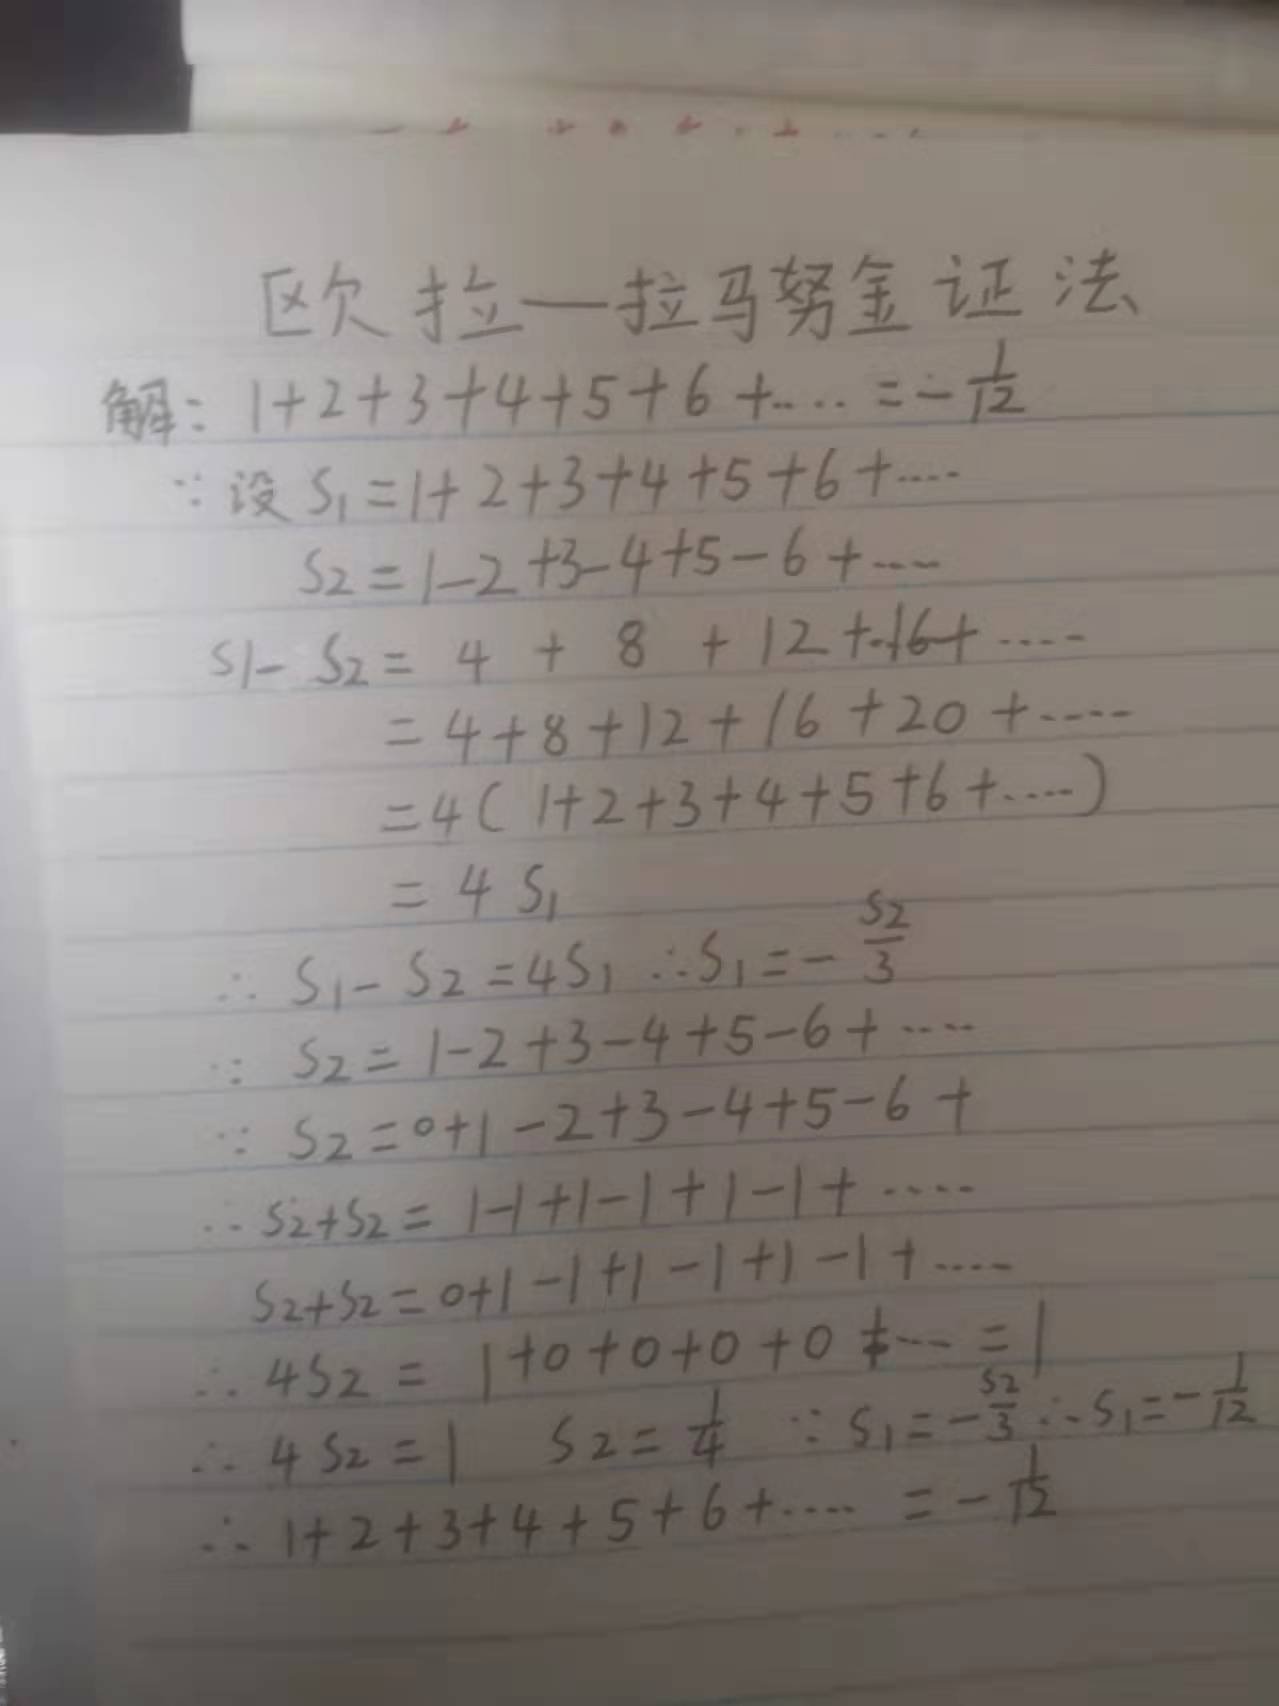 欧拉—拉马努金证法
解: 1+2+3+4+5+6+.... =-1/12
∵设 S1=1+2+3+4+5+6+....
S2=1-2+3-4+5-6+....
S1-S2= 4 + 8 + 12+16+....
=4+8+12+16+20+....
=4(1+2+3+4+5+6+....)
=4S1
∴ S1-S2=4S1 ∴S1=-S2/3
∵ S2=1-2+3-4+5-6+....
∵ S2=0+1-2+3-4+5-6+
∴S2+S2=1-1+1-1+1-1+....
S2+S2=0+1-1+1-1+1-1+....
∴4S2=1+0+0+0+0+....=1
∴4S2=1 S2=1/4 ∵S1=-S2/3 ∴S1=-1/12
∴1+2+3+4+5+6+.... =-1/12